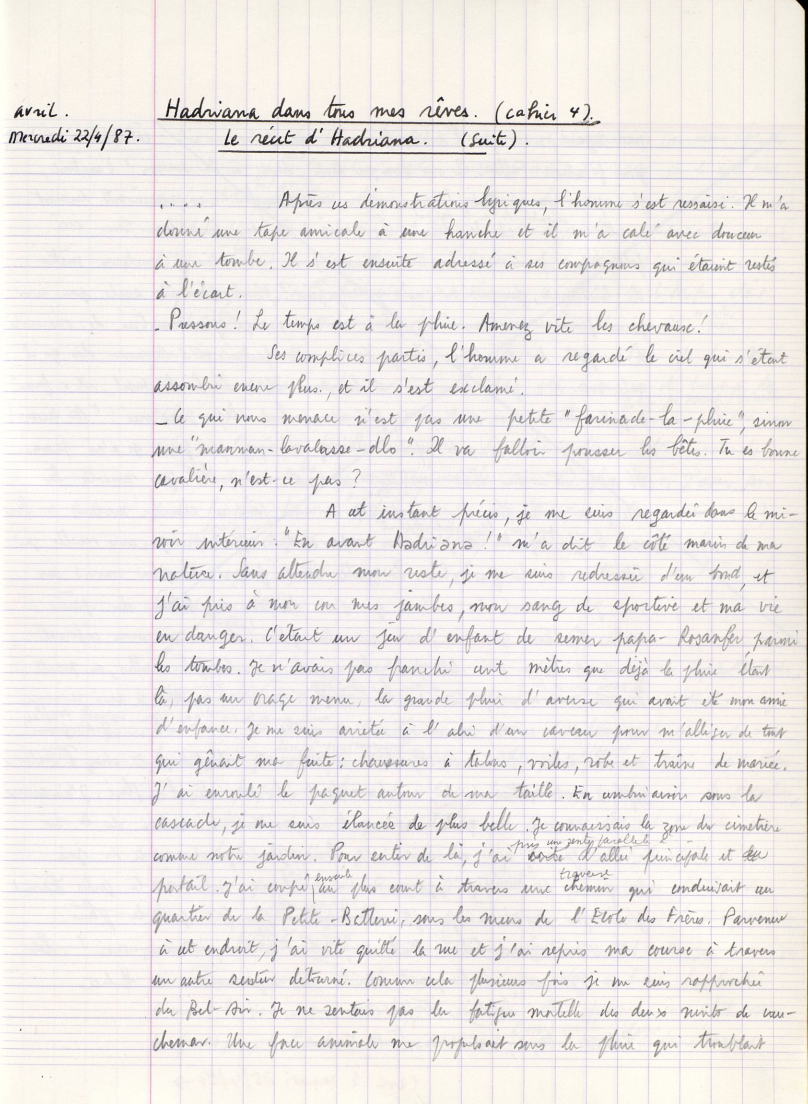 avril.
Mercredi 22/4/87.
Hadriana dans tous mes rêves. (cahier 4).
Le récit d'Hadriana. (Suite).
.... Après ces démonstrations lyriques, l'homme s'est ressaisi. Il m'a
donné une tape amicale à une hanche et il m'a calé avec douceur
à une tombe. Il s'est ensuite adressé à ses compagnons qui étaient restés
à l'écart.
- Pressons ! Le temps est à la pluie. Amenez vite les chevaux !
Ses complices partis, l'homme a regardé le ciel qui s'était
assombri encore plus, et il s'est exclamé.
- Ce qui nous menace n'est pas une petite "farinade-la-pluie", sinon
une "manman-lavalasse-dlo". Il va falloir pousser les bêtes. Tu es bonne
cavalière, n'est-ce pas ?
A cet instant précis, je me suis regardée dans le mi-
roir intérieur. "En avant Hadriana !" m'a dit le côté marin de ma
nature. Sans attendre mon reste, je me suis redressée d'un bond, et
j'ai pris à mon cou mes jambes, mon sang de sportive et ma vie
en danger. C'était un jeu d'enfant de semer papa-Rosanfer parmi
les tombes. Je n'avais pas franchi cent mètres que déjà la pluie était
là, pas un orage menu, la grande pluie d'averse qui avait été mon amie
d'enfance. Je me suis arrêtée à l'abri d'un caveau pour m'alléger de tout
qui gênait ma fuite : chaussures à talons, voiles, robe et traîne de mariée.
J'ai enroulé le paquet autour de ma taille. En combinaison sous la
cascade, je me suis élancée de plus belle. Je connaissais la zone du cimetière
pris un sentier parallèle à
comme notre jardin. Pour sortir de là, j'ai d'allée principale et
ensuite traverse
portail. J'ai coupé au plus court à travers une chemin qui conduisait au
quartier de la Petite-Batterie, sous les murs de l'Ecole des Frères. Parvenue
à cet endroit, j'ai vite quitté la rue et j'ai repris ma course à travers
un autre sentier détourné. Comme cela plusieurs fois je me suis rapprochée
du Bel-Air. Je ne sentais pas la fatigue mortelle des deux nuits de cau-
chemar. Une force animale me propulsait sous la pluie qui troublait